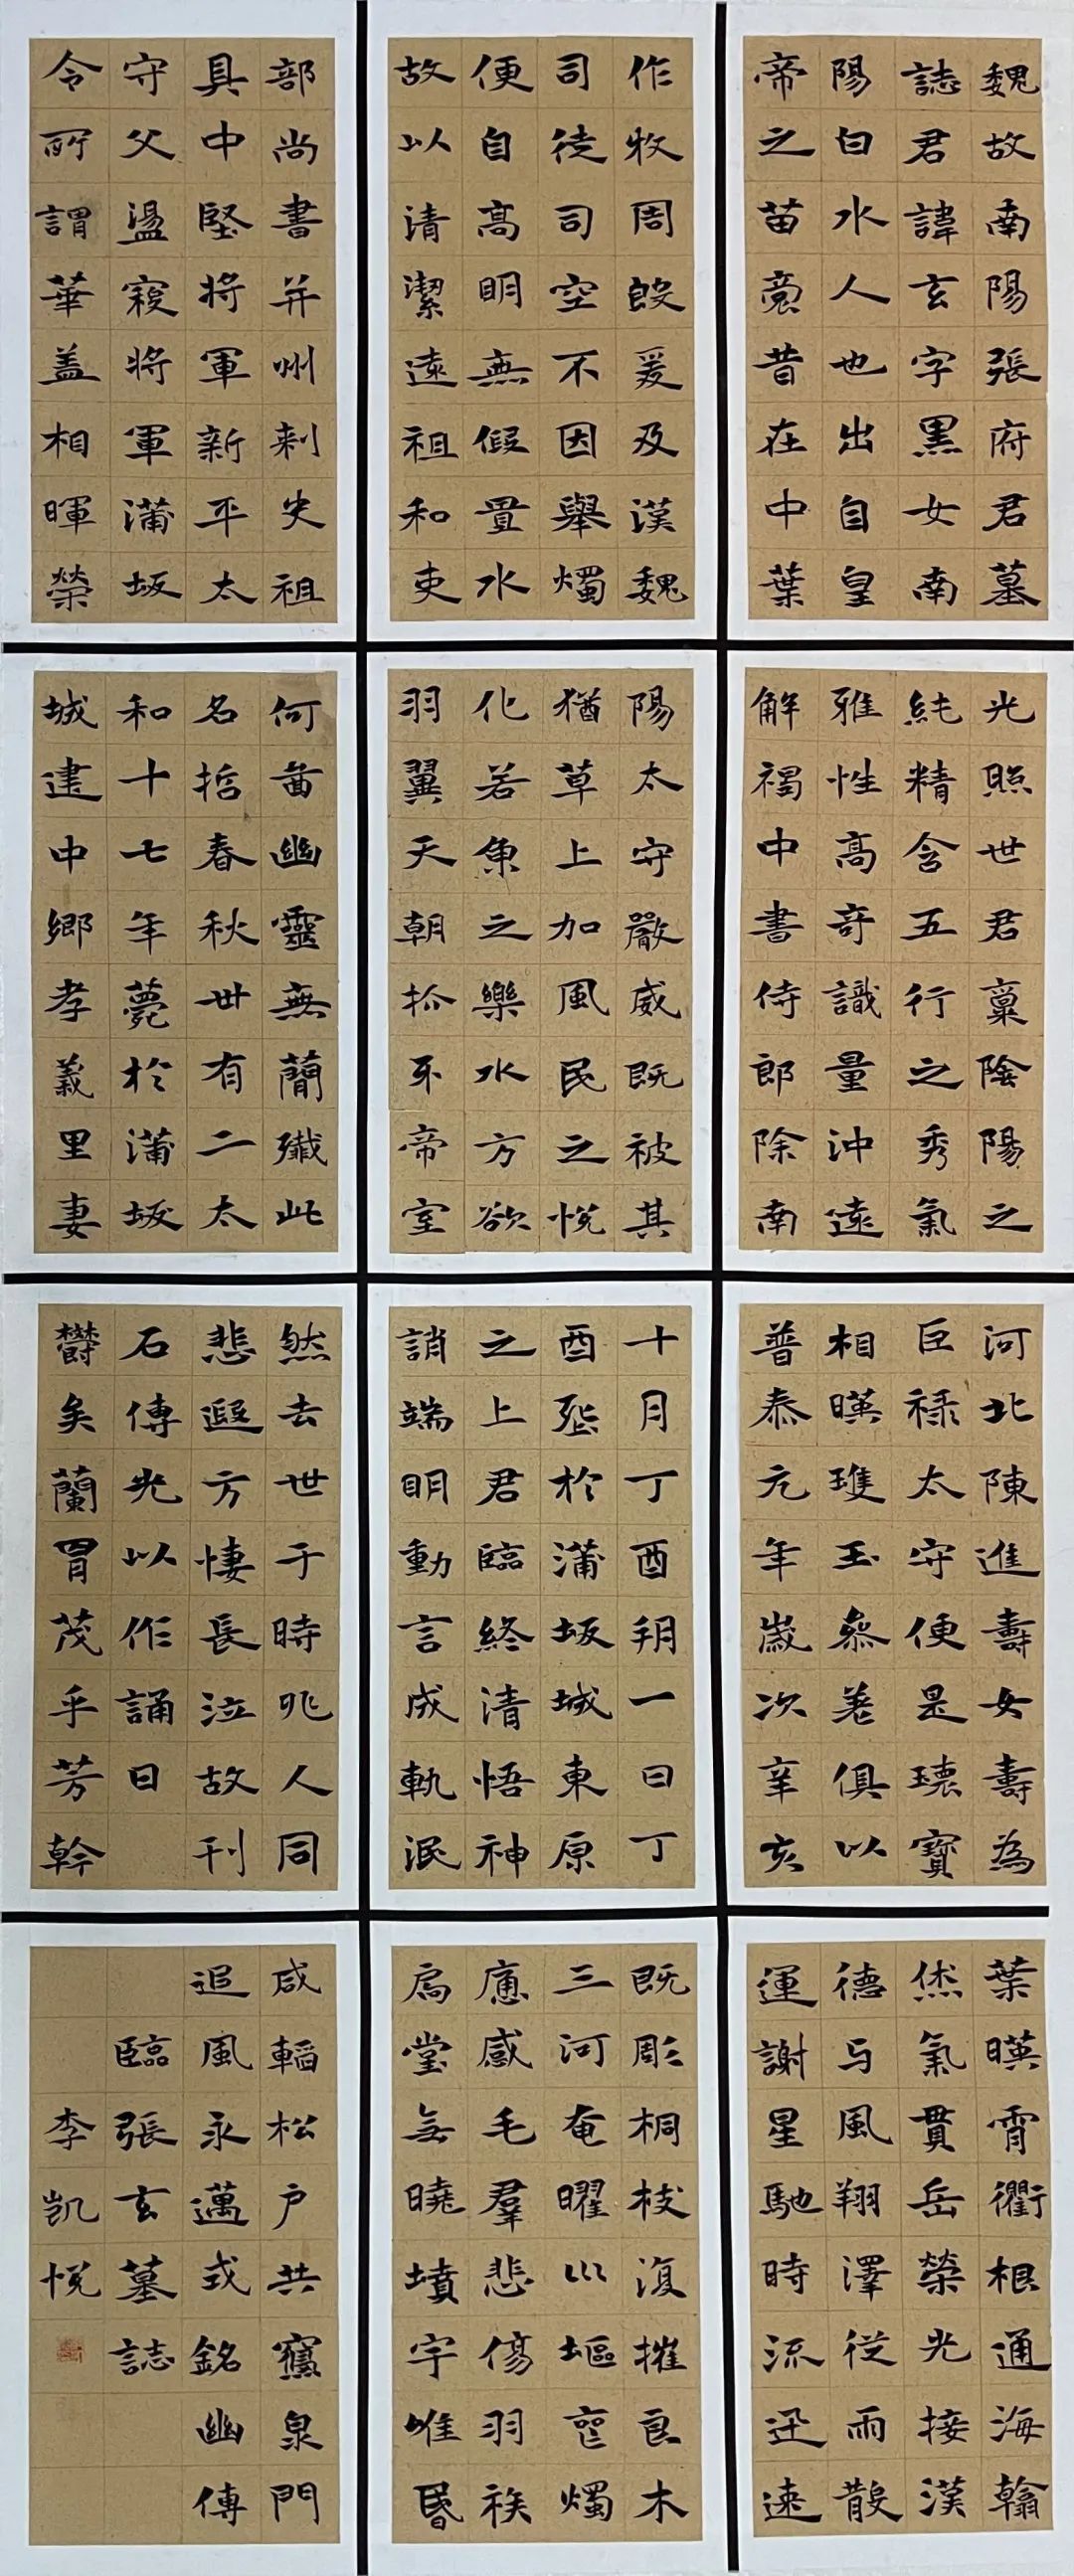 魏故南陽張府君墓
誌君諱玄字黑女南
陽白水人也出自皇
帝之苗裔昔在中葉
作牧周殷爰及漢魏
司徒司空不因舉燭
便自高明無假置水
故以清潔遠祖和吏
部尚書并州刺史祖
具中堅將軍新平太
守父盪寇將軍蒲坂
令所謂華蓋相暉榮
光照世君稟陰陽之
純精含五行之秀氣
雅性高奇識量沖遠
解褐中書侍郎除南
陽太守嚴威既被其
猶草上加風民之悅
化若魚之樂水方欲
羽翼天朝抓牙帝室
何啚幽靈無簡殲此
名哲春秋卅有二太
和十七年薨於蒲坂
城建中鄉孝義里妻
河北陳進壽女壽為
巨祿太守便是瓌寶
相暎瓊玉參差俱以
普泰元年歲次辛亥
十月丁酉朔一日丁
酉葬於蒲坂城東原
之上君臨終清悟神
誚端明動言成軌泯
然去世于時兆人同
悲遐方悽長泣故刊
石傳光以作誦曰
鬱矣蘭冑茂乎芳幹
葉暎霄衢根通海翰
烋氣貫岳榮光接漢
德与風翔澤從雨散
運謝星馳時流迅速
既彫桐枝復摧良木
三河奄曜川堀䆮燭
痛感毛羣悲傷羽族
扃堂無曉墳宇唯昏
咸韜松戶共寢泉門
追風永邁式銘幽傳
臨張玄墓誌
李凱悅